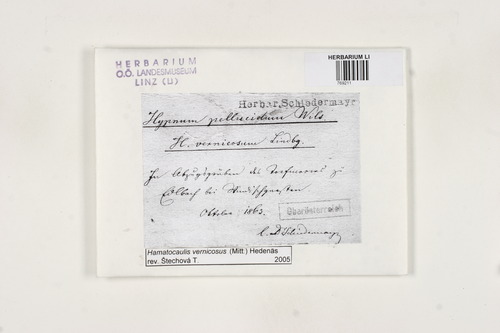 HERBARIUM
O.Ö. LANDESMUSEUM
LINZ (LI)
HERBARIUM LI
Herbar. Schiedermayr
Hypnum pellucidum Wils.
H. vernicosum Lindbg.
In Abzugsgräben des Torfmoores zu
bei Windischgarsten
Oktober 1863.
Oberösterreich
Schiedermayr
Hamatocaulis vernicosus (Mitt.) Hedenäs
rev. Štechová T. 2005